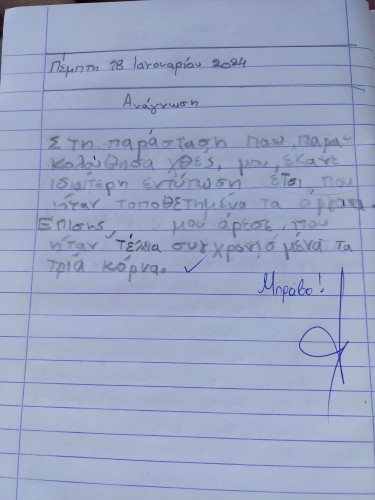 Πέμπτη 18 Ιανουαρίου 2024
Ανάγνωση
Στη παράσταση που παρα-
κολούθησα χθές, μου έκανε
ιδιαίτερη εντύπωση έτσι που
ήταν τοποθετημένα τα όργανα.
Επίσης, μου άρεσε που
ήταν τέλεια συγχρονισμένα τα
τρία κόρνα.
Μπράβο!